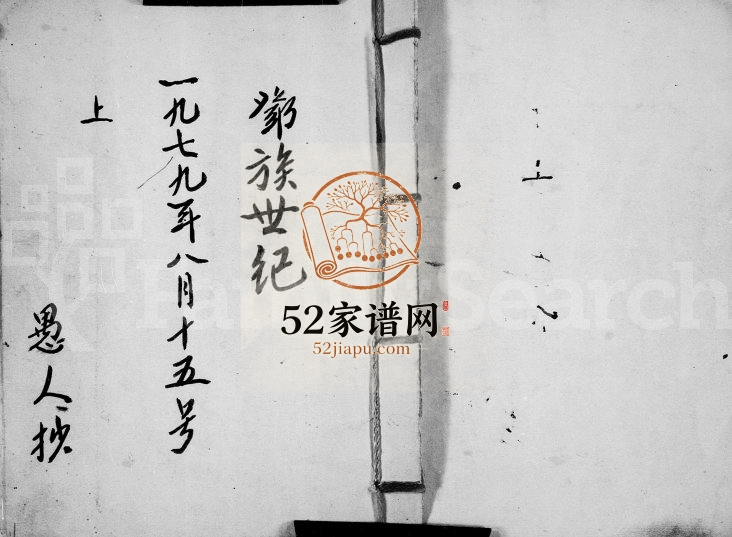 上
鄧族世纪
一九七九年八月十五号
上
愚人抄
52家谱网
52jiapu.com
FamilySearch